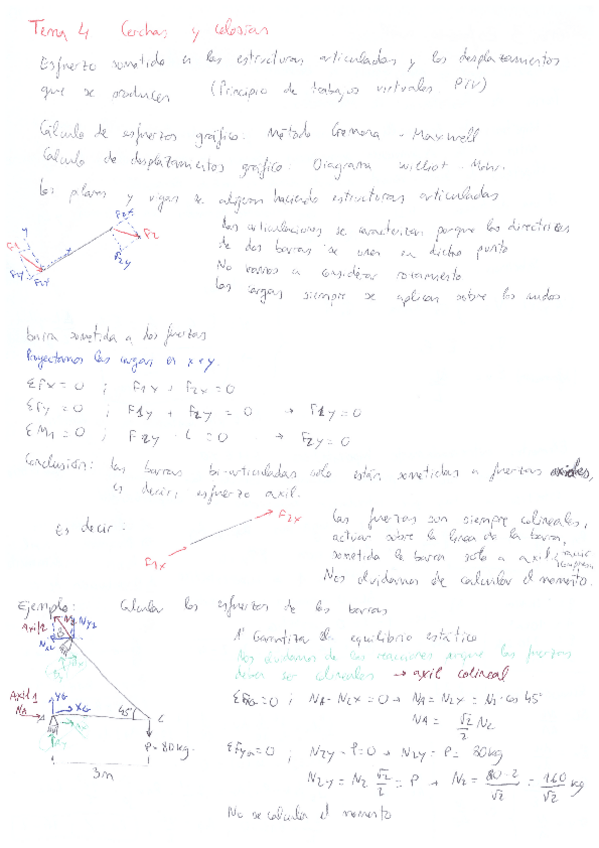 Tema 4 Cerchas y celosías
Esfuerzo sometido en las estructuras articuladas y los desplazamientos
que se producen (Principio de trabajos virtuales. PTV)
Cálculo de esfuerzos gráfico: Método Cremona - Maxwell
Cálculo de desplazamientos gráfico: Diagrama Williot - Mohr.
Los planos y vigas se haciendo estructuras articuladas
Las articulaciones se caracterizan porque las directrices
de dos barras se unen en dicho punto
No vamos a considerar rozamiento
Las cargas siempre se aplican sobre los nudos
F1 y x F2x F2 F2y F1y F1x
barra sometida a dos fuerzas
Proyectamos las cargas en x e y.
ΣFx = 0 ; F1x + F2x = 0
ΣFy = 0 ; F1y + F2y = 0 → F1y = 0
ΣM1 = 0 ; F2y · L = 0 → F2y = 0
Conclusión: Las barras bi-articuladas solo están sometidas a fuerzas axiales,
es decir, esfuerzo axil.
Es decir: F1x F2x
Las fuerzas son siempre colineales,
actúan sobre la línea de la barra,
sometida la barra solo a axil
Nos olvidamos de calcular el momento.
Ejemplo: Calcular los esfuerzos de las barras
Axil 2 N2 N2y
Axil 1 N1 YG XG 45° C
P = 80 kg.
3m
1º Garantizar el equilibrio estático
Nos olvidamos de las reacciones porque las fuerzas
deben ser colineales → axil colineal
= 0 ; N1 - N2x = 0 → N1 = N2x = N2 · cos 45°
N1 = √2/2 N2
= 0 ; N2y - P = 0 → N2y = P = 80 kg
N2y = N2 √2/2 = P → N2 = 80·2/√2 = 160/√2 kg
No se calcula el momento